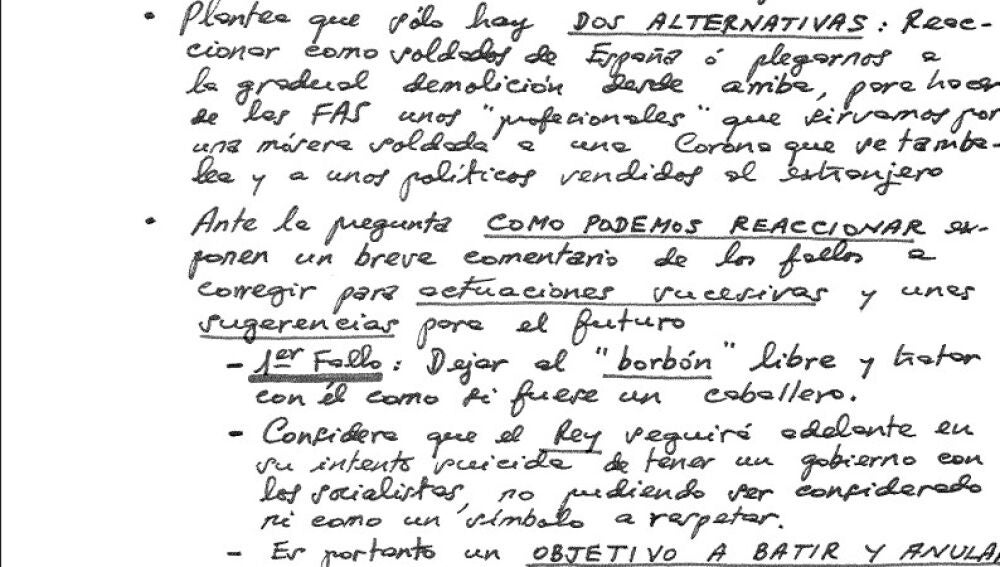 • Plantea que sólo hay DOS ALTERNATIVAS: Reac-
cionar como soldados de España ó plegarnos a
la gradual demolición desde arriba, para hacer
de las FAS unos "profesionales" que sirvamos por
una mísera soldada a una Corona que se tamba-
lea y a unos políticos vendidos al extranjero
• Ante la pregunta COMO PODEMOS REACCIONAR ex-
ponen un breve comentario de los fallos a
corregir para actuaciones sucesivas y unas
sugerencias para el futuro
- 1er Fallo: Dejar al "borbón" libre y tratar
con él como si fuese un caballero.
- Considera que el Rey seguirá adelante en
su intento suicida de tener un gobierno con
los socialistas, no pudiendo ser considerado
ni como un símbolo a respetar.
- Es portanto un OBJETIVO A BATIR Y ANULAR